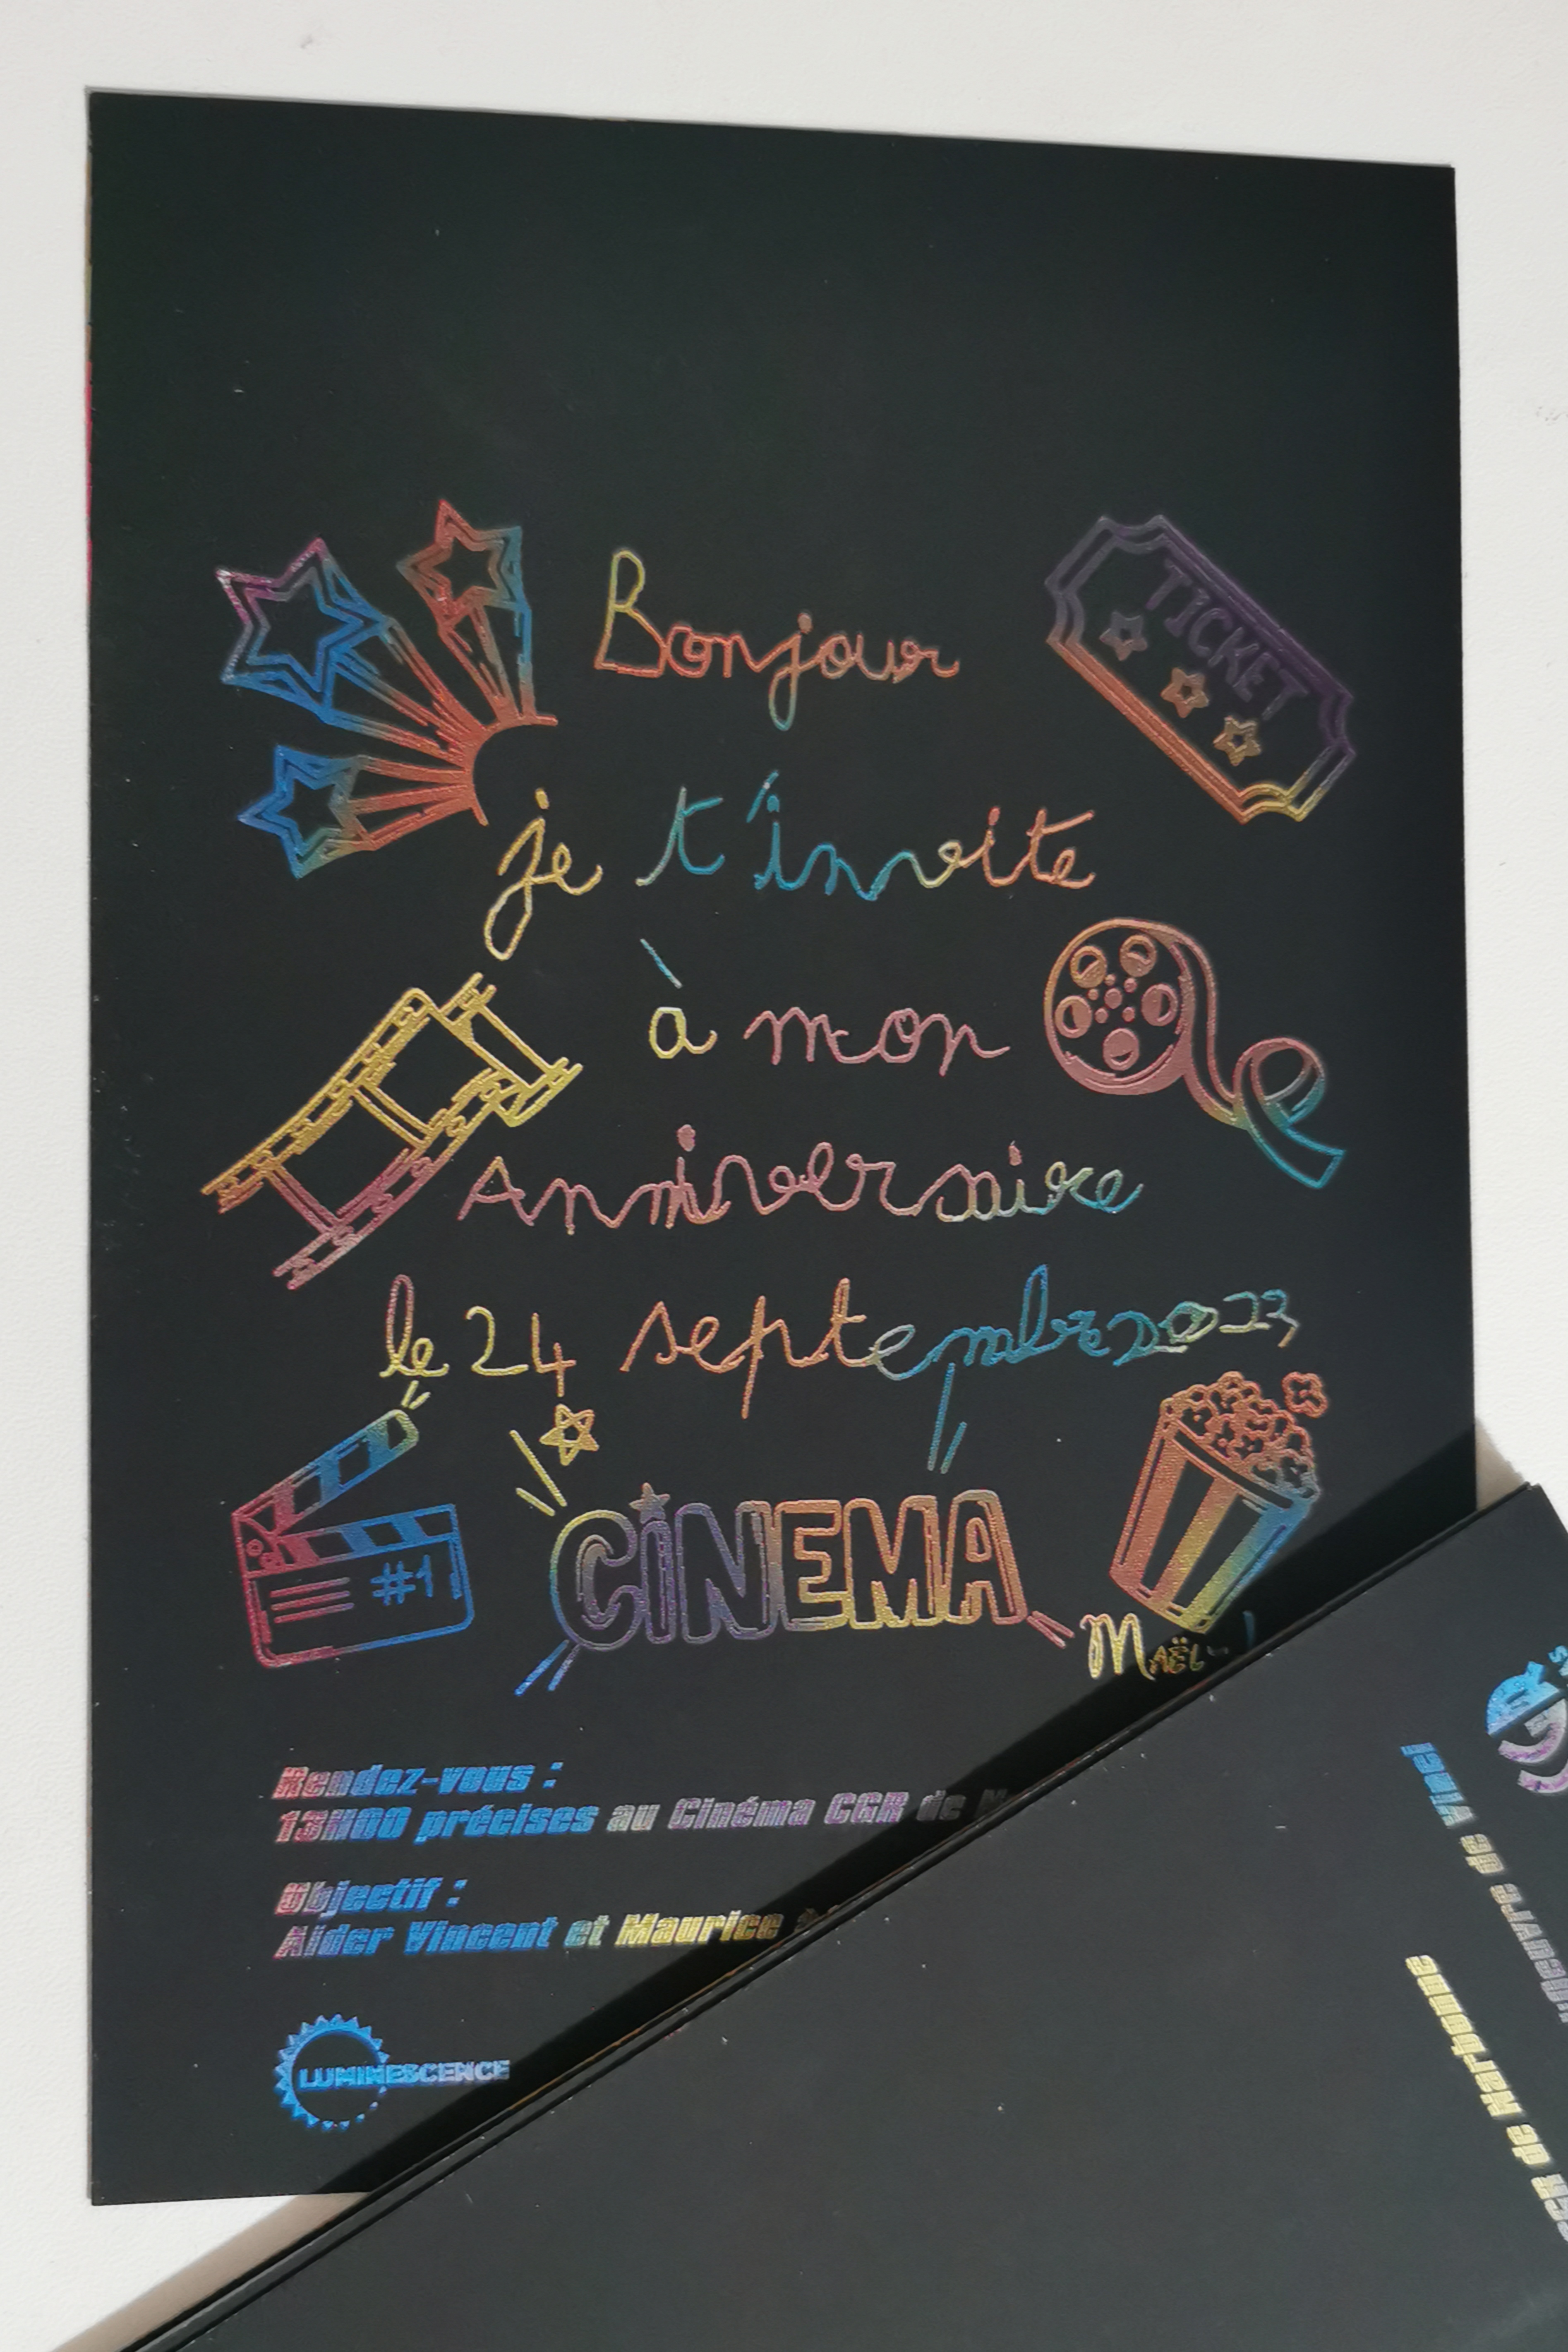 Bonjour
TICKET
je t'invite
à mon
Anniversaire
le 24 septembre 2023
#1
CINEMA
Rendez-vous :
13H00 précises au Cinéma CGR de
Objectif :
Aider Vincent et Maurice
LUMINESCENCE
CGR de Narbonne